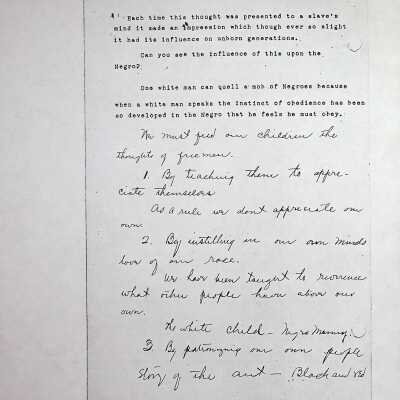 Each time this thought was presented to a slave's
mind it made an impression which though ever so slight
it had its influence on unborn generations.
Can you see the influence of this upon the
Negro?
One white man can quell a mob of Negroes because
when a white man speaks the instinct of obedience has been
so developed in the Negro that he feels he must obey.
We must feed our children the
thoughts of freemen.
1. By teaching them to appre-
ciate themselves
As a rule we dont appreciate our
own.
2. By instilling in our own minds
love of our race.
We have been taught to reverence
what other people have above our
own.
The white child – Negro Mammy
3. By patronizing our own people
Story of the ant – Black and Red